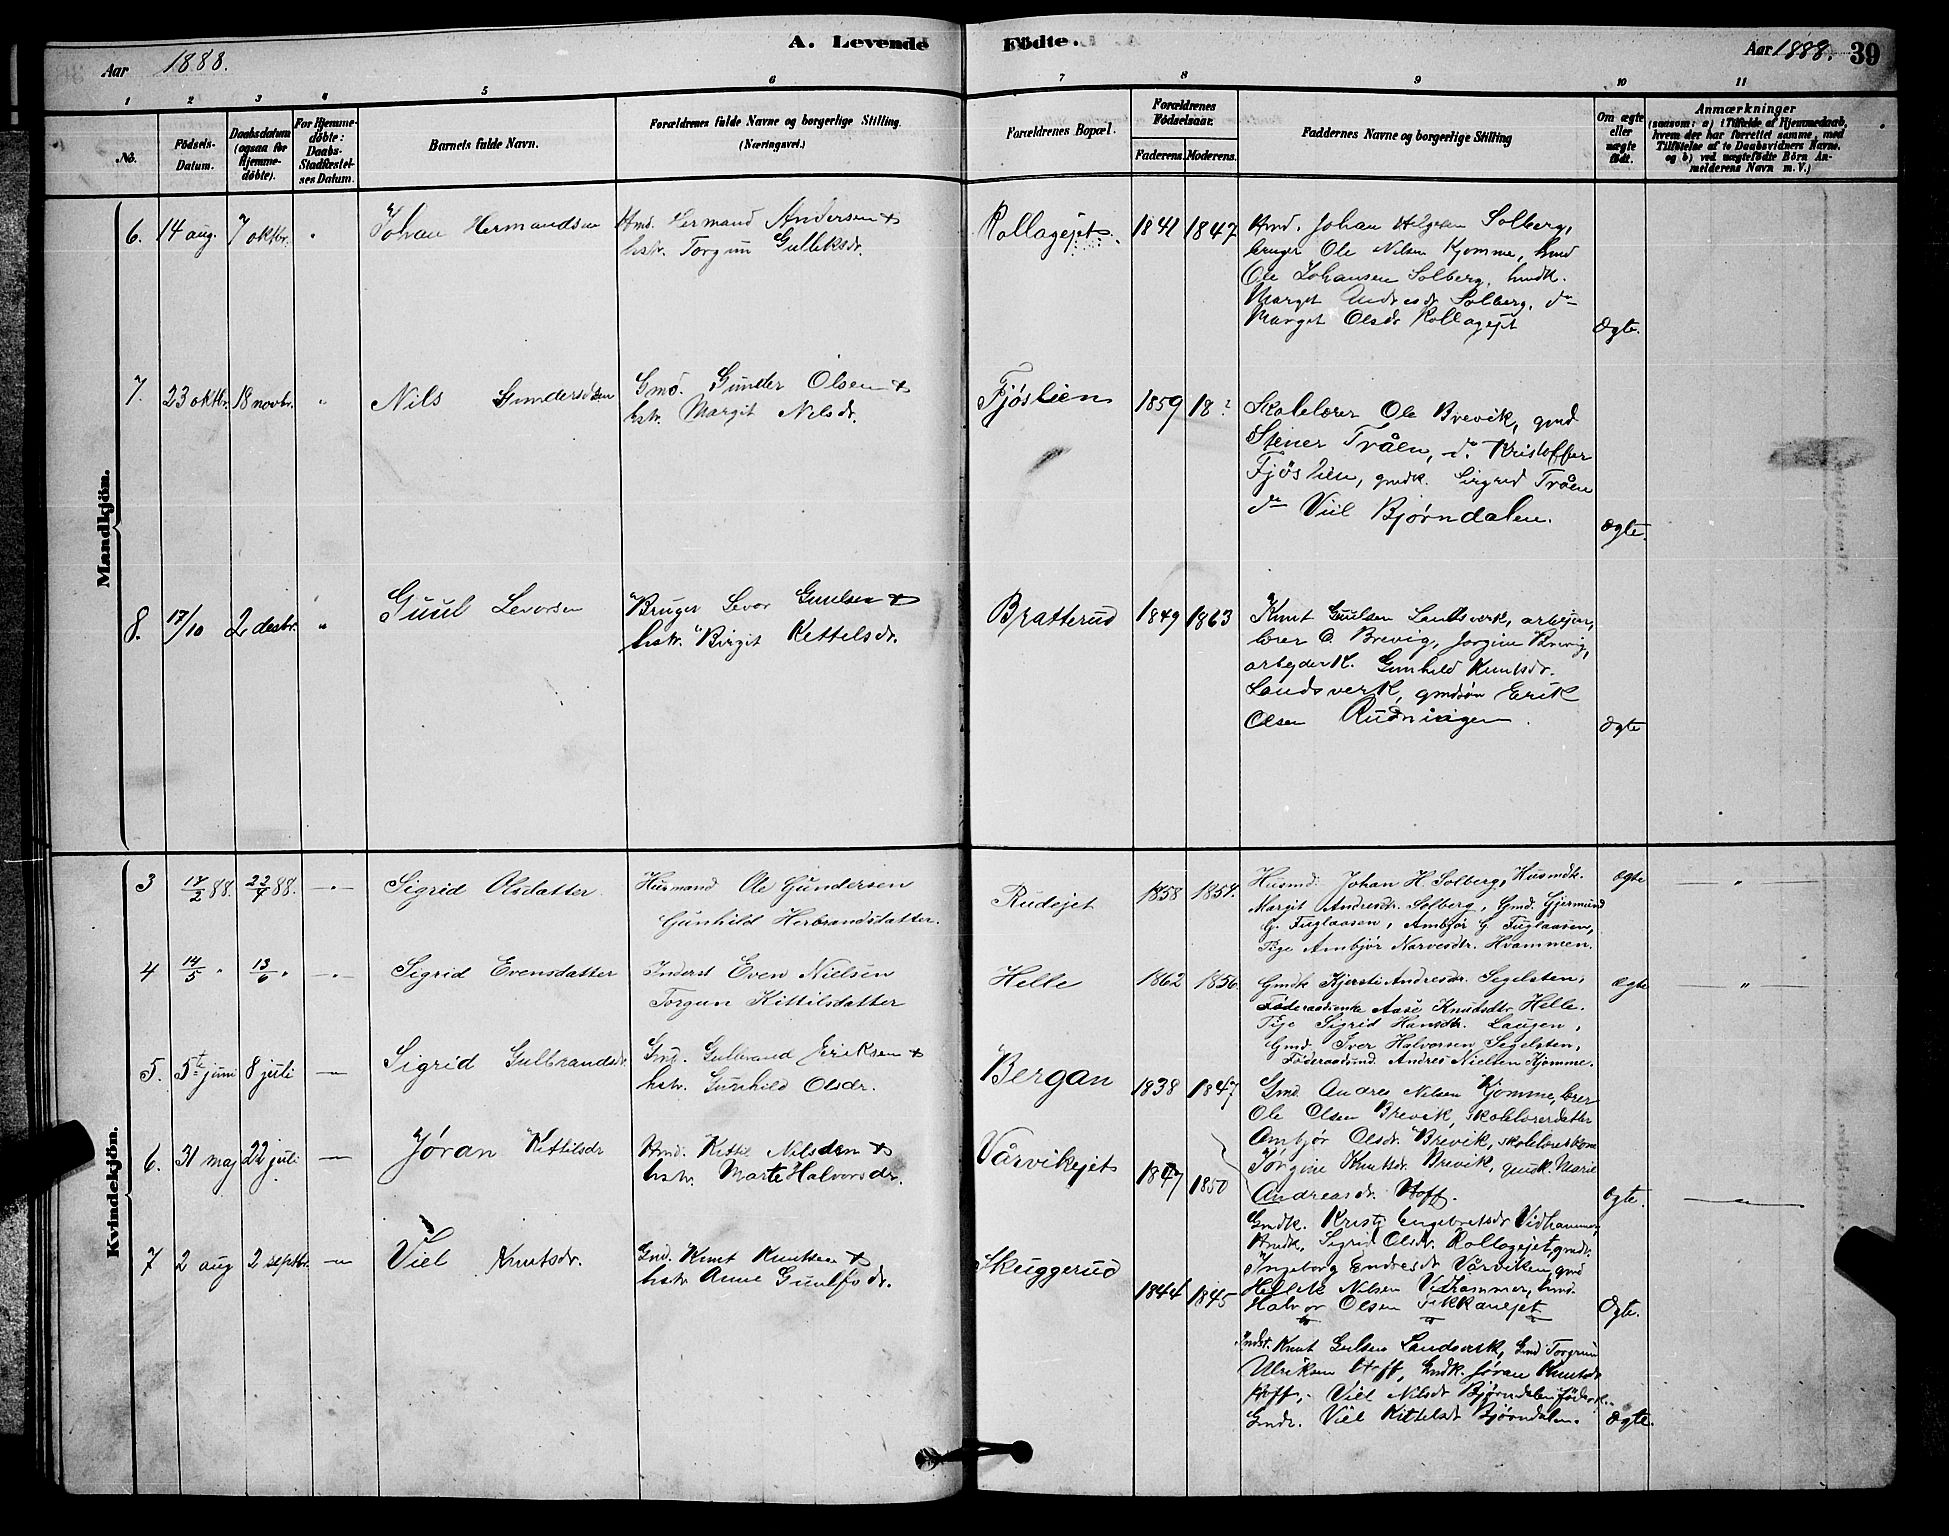 Aar 1888. A. Levende Födte. Aar 1888. 39
1 2 3 4 5 6 7 8 9 10 11
No.
Födsels-Datum.
Daabsdatum (ogsaa for Hjemmedöbte).
For Hjemmedöbte: Daabs-Stadfæstelses Datum.
Barnets fulde Navn.
Forældrenes fulde Navne og borgerlige Stilling. (Næringsvei.)
Forældrenes Bopæl.
Forældrenes Födselsaar.
Faderens. Moderens.
Faddernes Navne og borgerlige Stilling
Om ægte eller uægte født.
Anmærkninger
(saasom: a) i Tilfælde af Hjemmedaab,
hvem der har forrettet samme, med
Tilföielse af to Daabsvidners Navne.
og b) ved uægtefödte Börn An-
melderens Navn m. V.)
Mandkjön.
6. 14 aug. 7 oktbr. Johan Hermandsen
Hmd. Hermand Andersen &
hstr. Torgun Gulleksdr.
Rollagejet. 1841 1847
Hmd. Johan Helgesen Solberg,
bruger Ole Nilsen Kjomme, hmd
Ole Johansen Solberg, hmdk.
Marget Andresdr Solberg, do
Marget Olsdr Rollagejet
Ægte.
7. 23 oktbr. 18 novbr. Nils Gundersen
Gmd. Gunder Olsen &
hstr. Margit Nilsdr.
Fjøslien 1859 18 ?
Skolelærer Ole Brevik, gmd
Stener Tråen, do. Kristoffer
Fjøslien, gmdk. Sigrid Tråen
do Viil Bjørndalen.
Ægte.
8. 17/10 2 desbr. Guul Levorsen
Bruger Levor Guulsen &
hstr. Birgit Kettelsdr.
Bratterud 1849 1863
Knut Guulsen Landsverk, arbejder,
lærer O. Brevig, Jorgine Brevig,
arbejderk. Gunhild Knutsdr.
Landsverk, gmdsøn Erik
Olsen Rudningen.
Ægte
Kvindekjön.
3 17/2 88. 22/4 88. Sigrid Olsdatter.
Husmand Ole Gundersen
Gunhild Herbrandsdatter.
Rudejet 1858 1854.
Husmd. Johan H Solberg, Husmdk.
Margit Andresdr. Solberg, Gmd. Gjermund
G. Fuglaasen, Ambjør G Fuglaasen,
Pige Ambjør Narvesdtr. Hvammen.
Ægte
4 14/5 " 13/6 " Sigrid Evensdatter
Inderst Even Nielsen
Torgun Kittilsdatter
Helle 1862 1856.
Gmdk Kjersti Andresdr. Segelsten,
Föderaadsenke Aase Knudsdtr Helle.
Pige Sigrid Hansdtr. Laugen,
Gmd. Iver Halvorsen Segelsten,
Föderaadsmd. Andres Nielsen Kjomme.
Ægte
5. 5te juni 8 juli Sigrid Gulbrandsdr.
Gmd. Gulbrand Eriksen &
hstr. Gunhild Olsdr.
Bergan 1838 1847
Gmd. Andres Nilsen Kjomme, lærer
Ole Olsen Brevik, skolelærerdatter
Ambjør Olsdr. Brevik, skolelærerkone
Jørgine Knutsdr. Brevik, gmdk. Marie
Andreasdr. Hoff.
Ægte.
6. 31 maj 22 juli Jøran Kittilsdr
Hmd. Kittil Nilsen &
hstr. Marte Halvorsdr.
Vårvikejet 1847 1850
Gmdk. Kristi Engebretsdr Vidhammer,
Hmdk. Sigrid Olsdr. Rollagejet, gmdk.
Ingeborg Endresdr Vårviken, gmd
Hellek Nilsen Vidhammer, hmd.
Halvor Olsen
Ægte.
7 2 aug 2 septbr. Viel Knutsdr.
Gmd. Knut Knutsen &
hstr Anne Guulsdr.
Skuggerud 1844 1845
Indst. Knut Gulsen Landsverk, Gmd Torgrim
Ulriksen Hoff, Gmdk. Jøran Knutsdr
Hoff, Viel Nilsdr Bjørndalen
Gmdk. Viel Kittelsdr Bjørndalen.
Ægte.